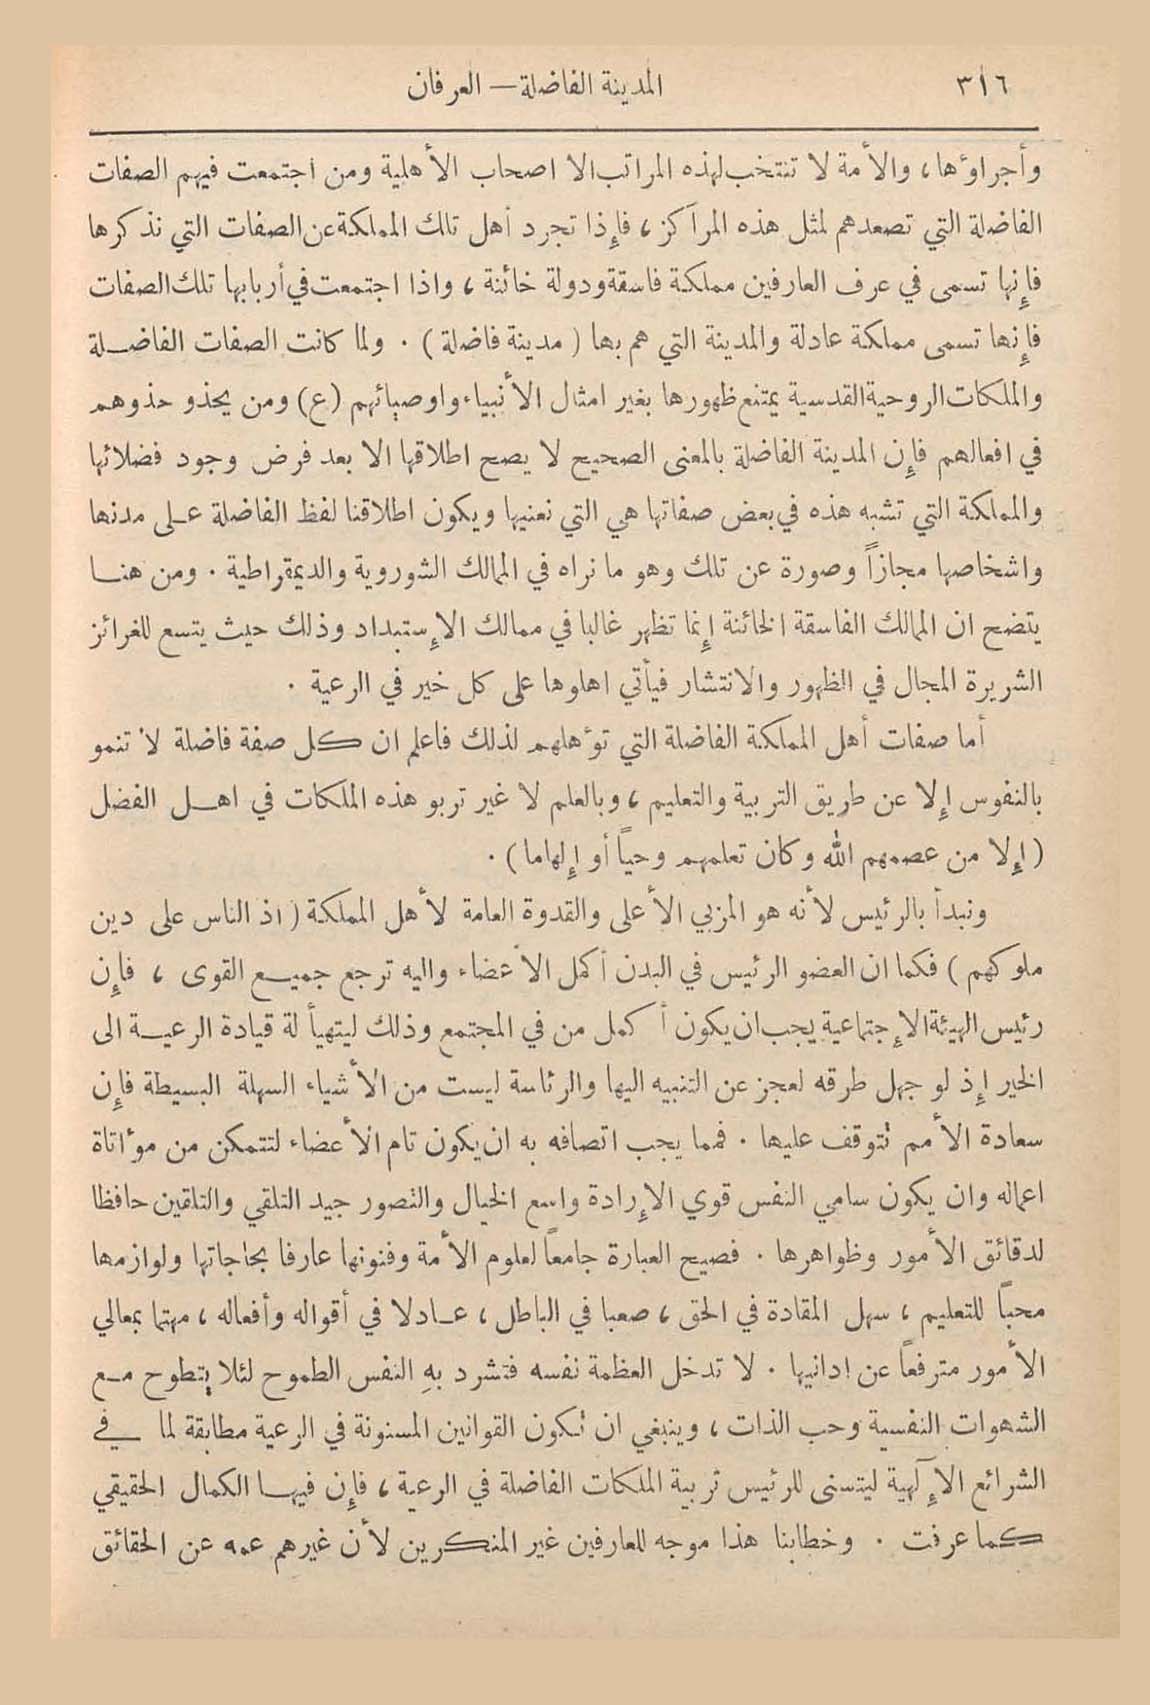 ٣١٦
المدينة الفاضلة — العرفان
وأجراؤها، والأمة لا تنتخب لهذه المراتب الا اصحاب الأهلية ومن اجتمعت فيهم الصفات
الفاضلة التي تصعدهم لمثل هذه المرآكز، فإذا تجرد أهل تلك المملكة عن الصفات التي نذكرها
فإنها تسمى في عرف العارفين مملكة فاسقة ودولة خائنة، واذا اجتمعت في أربابها تلك الصفات
فإنها تسمى مملكة عادلة والمدينة التي هم بها (مدينة فاضلة). ولما كانت الصفات الفاضـلة
والملكات الروحية القدسية يمتنع ظهورها بغير امثال الأنبياء واوصيائهم (ع) ومن يحذو حذوهم
في افعالهم فإن المدينة الفاضلة بالمعنى الصحيح لا يصح اطلاقها الا بعد فرض وجود فضلائها
والمملكة التي تشبه هذه في بعض صفاتها هي التي نعنيها ويكون اطلاقنا لفظ الفاضلة عـلى مدنها
واشخاصها مجازاً وصورة عن تلك وهو ما نراه في الممالك الشوروية والديمقراطية. ومن هنـا
يتضح ان الممالك الفاسقة الخائنة إنما تظهر غالبا في ممالك الإستبداد وذلك حيث يتسع للغرائز
الشريرة المجال في الظهور والانتشار فيأتي اهلوها على كل خير في الرعية.
أما صفات أهل المملكة الفاضلة التي تؤهلهم لذلك فاعلم ان كل صفة فاضلة لا تنمو
بالنفوس إلا عن طريق التربية والتعليم، وبالعلم لا غير تربو هذه الملكات في اهـل الفضل
(إلا من عصمهم الله وكان تعلمهم وحياً أو إلهاما).
ونبدأ بالرئيس لأنه هو المربي الأعلى والقدوة العامة لأهل المملكة (اذ الناس على دين
ملوكهم) فكما ان العضو الرئيس في البدن أكمل الأعضاء واليه ترجع جميـع القوى، فإن
رئيس الهيئة الإجتماعية يجب ان يكون أكمل من في المجتمع وذلك ليتهيأ لة قيادة الرعيـة الى
الخير إذ لو جهل طرقه لعجز عن التنبيه اليها والرئاسة ليست من الأشياء السهلة البسيطة فإن
سعادة الأمم تتوقف عليها. فمما يجب اتصافه به ان يكون تام الأعضاء لتتمكن من مؤاتاة
اعماله وان يكون سامي النفس قوي الإرادة واسع الخيال والتصور جيد التلقي والتلقين حافظا
لدقائق الأمور وظواهرها. فصيح العبارة جامعاً لعلوم الأمة وفنونها عارفا بحاجاتها ولوازمها
محباً للتعليم، سهل المقادة في الحق، صعبا في الباطل، عـادلا في أقواله وأفعاله، مهتما بمعالي
الأمور مترفعاً عن ادانيها. لا تدخل العظمة نفسه فتشرد بهِ النفس الطموح لئلا يتطوح مـع
الشهوات النفسية وحب الذات، وينبغي ان تكون القوانين المسنونة في الرعية مطابقة لما في
الشرائع الإلهية ليتسنى للرئيس تربية الملكات الفاضلة في الرعية، فإن فيهـا الكمال الحقيقي
كما عرفت. وخطابنا هذا موجه للعارفين غير المنكرين لأن غيرهم عمه عن الحقائق